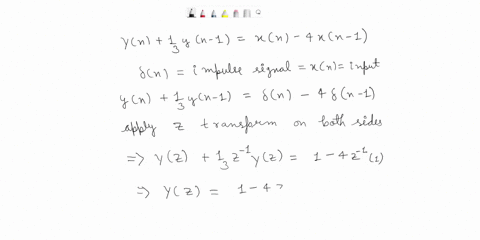 y(n) + 1/3 y(n-1) = x(n) - 4x(n-1)
δ(n) = impulse signal = x(n) = input
y(n) + 1/3 y(n-1) = δ(n) - 4 δ(n-1)
apply z transform on both sides
=> Y(z) + 1/3 z⁻¹ Y(z) = 1 - 4z⁻¹ (1)
=> Y(z) = 1 - 4